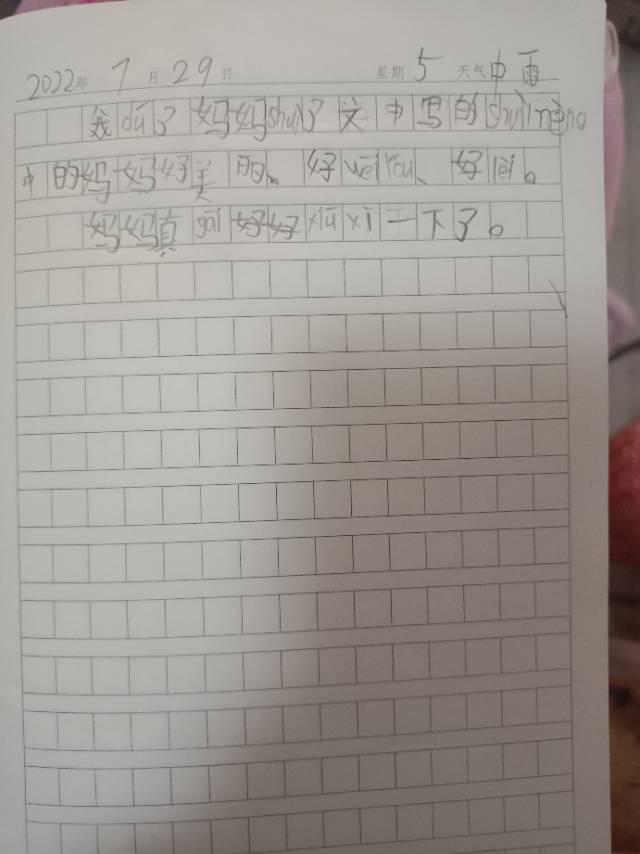 2022年 7月 29日 星期5 天气中雨
我dú了妈妈shuì了文中写的shuìmèng
中的妈妈好美丽、好wēnróu、好lèi。
妈妈真gāi好好xiūxi一下了。